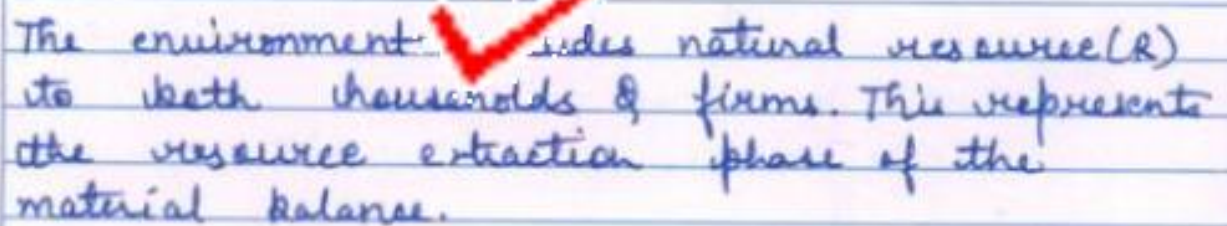 The environment natural resource(R)
to both households & firms. This represents
the resource extraction phase of the
material balance.